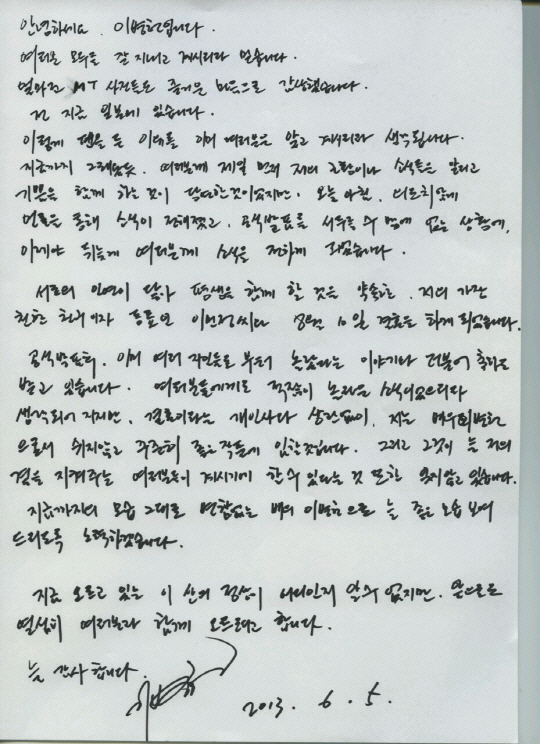 안녕하세요. 이병헌입니다.
여러분 모두들 잘 지내고 계시리라 믿습니다.
얼마전 MT 사진들은 즐거운 마음으로 감상했습니다.
전 지금 일본에 있습니다.
이렇게 펜을 든 이유를 이미 여러분은 알고 계시리라 생각됩니다.
지금까지 그래왔듯, 여러분께 제일 먼저 저의 근황이나 소식들을 알리고
기쁨을 함께 하는 것이 당연한것이었지만, 오늘 아침, 의도치않게
언론을 통해 소식이 전해졌고, 공식발표를 서두를 수 밖에 없는 상황에,
이제야 뒤늦게 여러분께 소식을 전하게 되었습니다.
서로의 인연이 닿아 평생을 함께 할 것을 약속한, 저의 가장
친한 친구이자 동료인 이민정씨와 8월 10일 결혼을 하게 되었습니다.
공식발표후, 이미 여러 지인들로 부터 놀랐다는 이야기와 더불어 축하를
받고 있습니다. 여러분들에게도 적잖이 놀라운 소식이었으리라
생각되어 지지만, 결혼이라는 개인사와 상관없이, 저는 배우이병헌
으로서 쉬지않고 꾸준히 좋은 작품에 임할것입니다. 그리고 그것이 늘 저의
곁을 지켜주는 여러분들이 계시기에 할 수 있다는 것 또한 잊지않고 있습니다.
지금까지의 모습 그대로 변함없는 배우 이병헌으로 늘 좋은 모습 보여
드리도록 노력하겠습니다.
지금 오르고 있는 이 산의 정상이 어디인지 알 수 없지만, 앞으로도
열심히 여러분과 함께 오르려고 합니다.
늘 감사합니다.
2013. 6. 5.